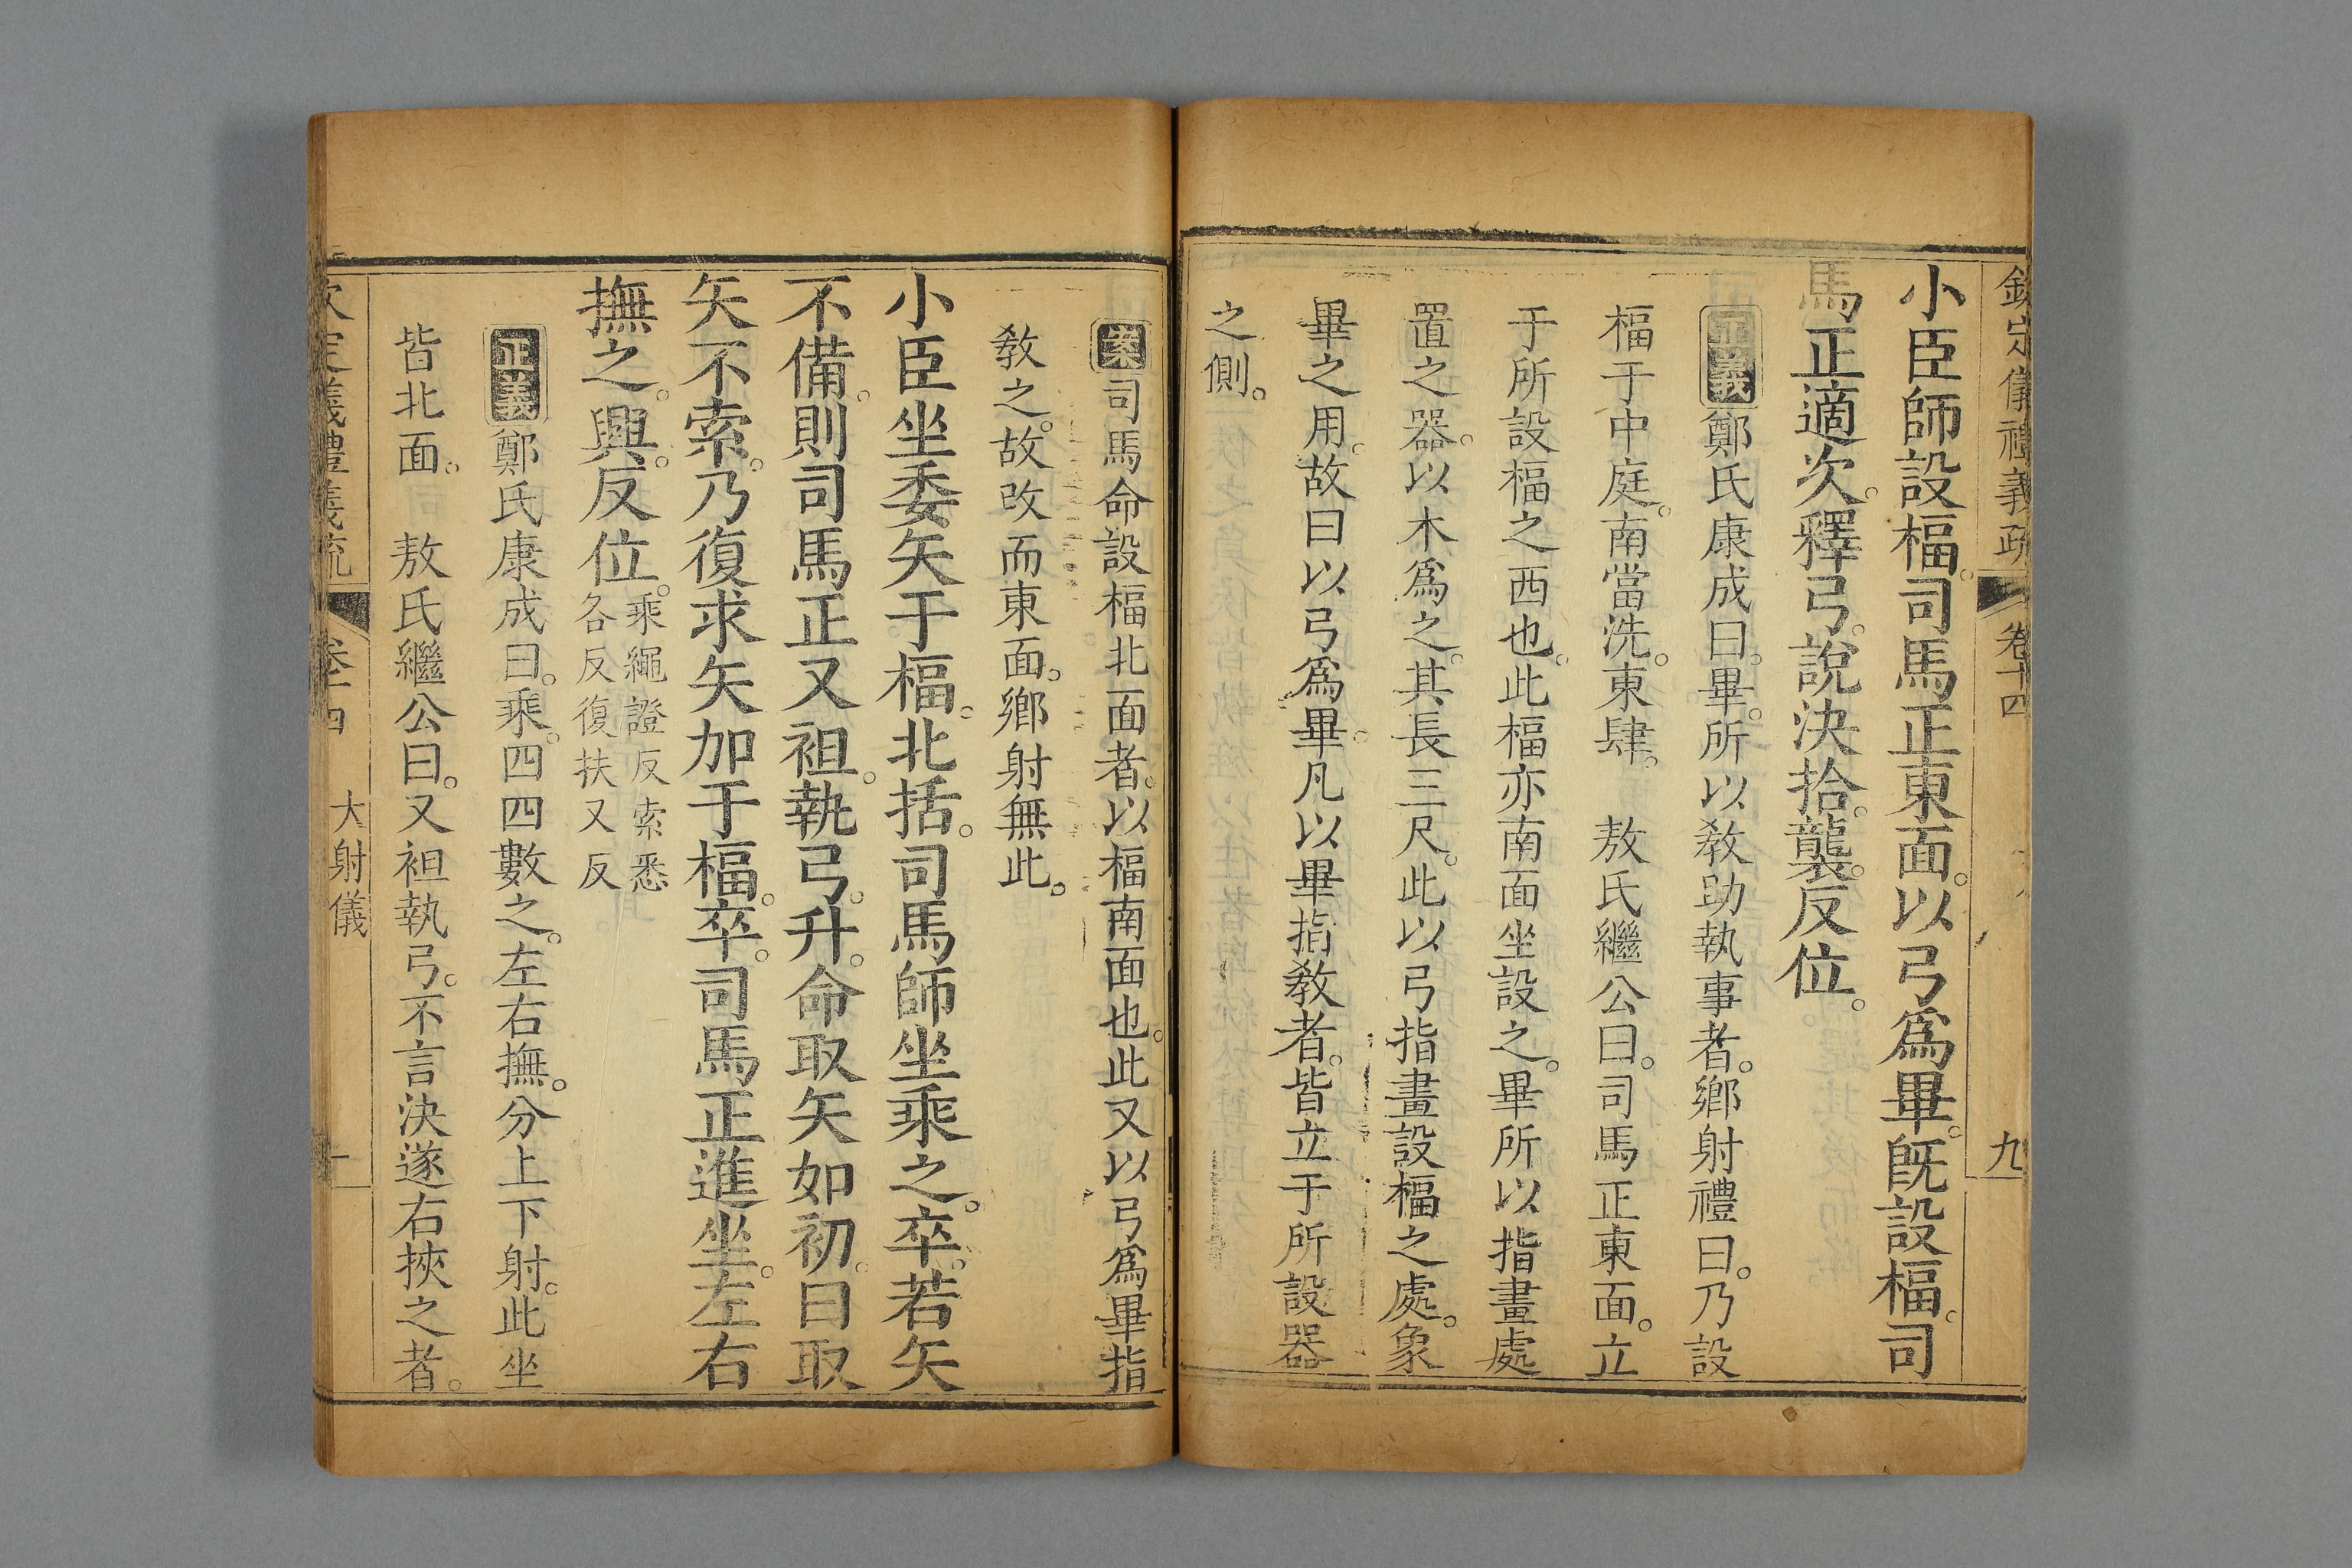 欽定儀禮義疏 卷十四 九
小臣師設楅。司馬正東面。以弓爲畢。既設楅。司
馬正適次。釋弓。說決拾。襲。反位。
正義鄭氏康成曰。畢。所以敎助執事者。鄉射禮曰。乃設
楅于中庭。南當洗。東肆。 敖氏繼公曰。司馬正東面。立
于所設楅之西也。此楅亦南面坐設之。畢所以指畫處
置之器。以木爲之。其長三尺。此以弓指畫設楅之處。象
畢之用。故曰以弓爲畢。凡以畢指敎者。皆立于所設器
之側。
案司馬命設楅北面者。以楅南面也。此又以弓爲畢指
敎之。故改而東面。鄉射無此。
小臣坐委矢于楅。北括。司馬師坐乘之。卒。若矢
不備。則司馬正又袒。執弓。升。命取矢如初。曰取
矢不索。乃復求矢加于楅。卒。司馬正進坐。左右
撫之。興。反位。乘繩證反索悉
各反復扶又反
正義鄭氏康成曰。乘。四四數之。左右撫。分上下射。此坐
皆北面。 敖氏繼公曰。又袒執弓。不言決遂右挾之者。
欽定儀禮義疏 卷十四 大射儀